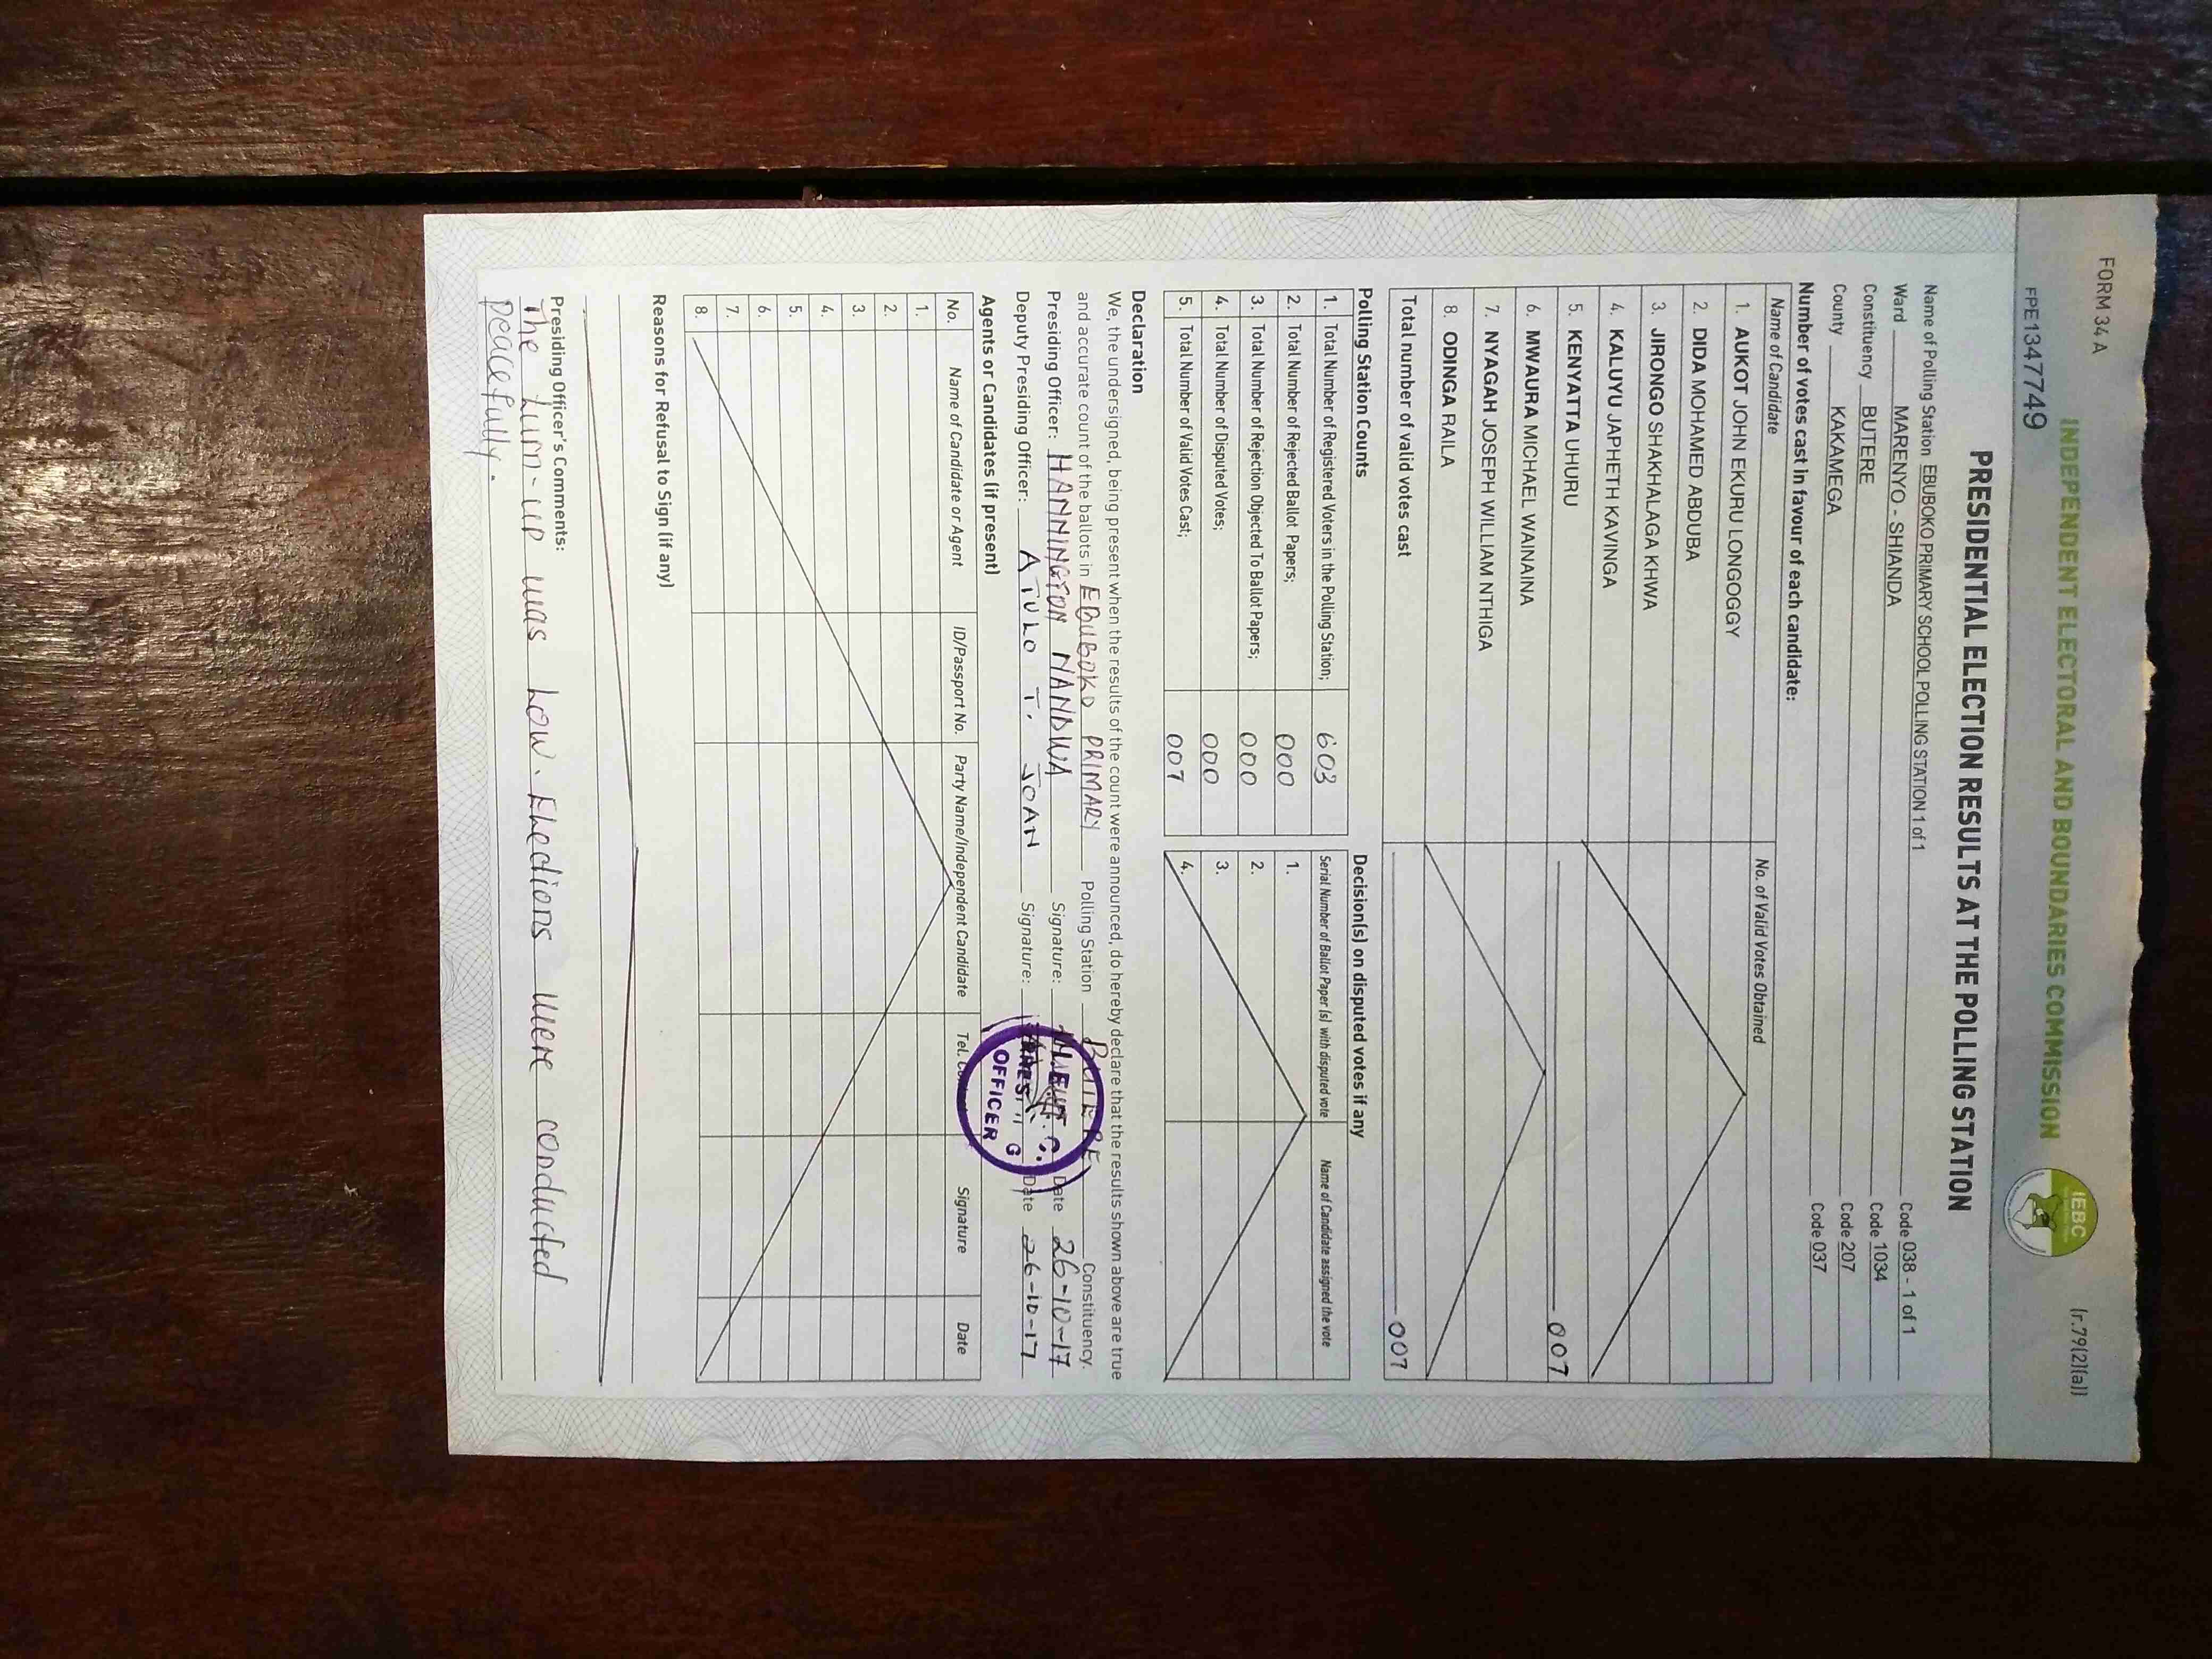 FORM 34 A
(r.79(2)(a))
INDEPENDENT ELECTORAL AND BOUNDARIES COMMISSION
IEBC
FPE1347749
PRESIDENTIAL ELECTION RESULTS AT THE POLLING STATION
Name of Polling Station EBUBOKO PRIMARY SCHOOL POLLING STATION 1 of 1 Code 038 - 1 of 1
Ward MARENYO - SHIANDA Code 1034
Constituency BUTERE Code 207
County KAKAMEGA Code 037
Number of votes cast in favour of each candidate:
Name of Candidate No. of Valid Votes Obtained
1. AUKOT JOHN EKURU LONGOGGY
2. DIDA MOHAMED ABDUBA
3. JIRONGO SHAKHALAGA KHWA
4. KALUYU JAPHETH KAVINGA
5. KENYATTA UHURU 007
6. MWAURA MICHAEL WAINAINA
7. NYAGAH JOSEPH WILLIAM NTHIGA
8. ODINGA RAILA
Total number of valid votes cast 007
Polling Station Counts
1. Total Number of Registered Voters in the Polling Station; 603
2. Total Number of Rejected Ballot Papers; 000
3. Total Number of Rejection Objected To Ballot Papers; 000
4. Total Number of Disputed Votes; 000
5. Total Number of Valid Votes Cast; 007
Decision(s) on disputed votes if any
Serial Number of Ballot Paper (s) with disputed vote Name of Candidate assigned the vote
1.
2.
3.
4.
Declaration
We, the undersigned, being present when the results of the count were announced, do hereby declare that the results shown above are true
and accurate count of the ballots in EBUBOKO PRIMARY Polling Station BUTERE Constituency.
Presiding Officer: HANNINGTON NANDWA Signature: Date 26-10-17
Deputy Presiding Officer: ATULO T. JOAN Signature: Date 26-10-17
OFFICER
Agents or Candidates (if present)
No. Name of Candidate or Agent ID/Passport No. Party Name/Independent Candidate Tel. Signature Date
1.
2.
3.
4.
5.
6.
7.
8.
Reasons for Refusal to Sign (if any)
Presiding Officer's Comments:
The turn-up was low. Elections were conducted
peacefully.